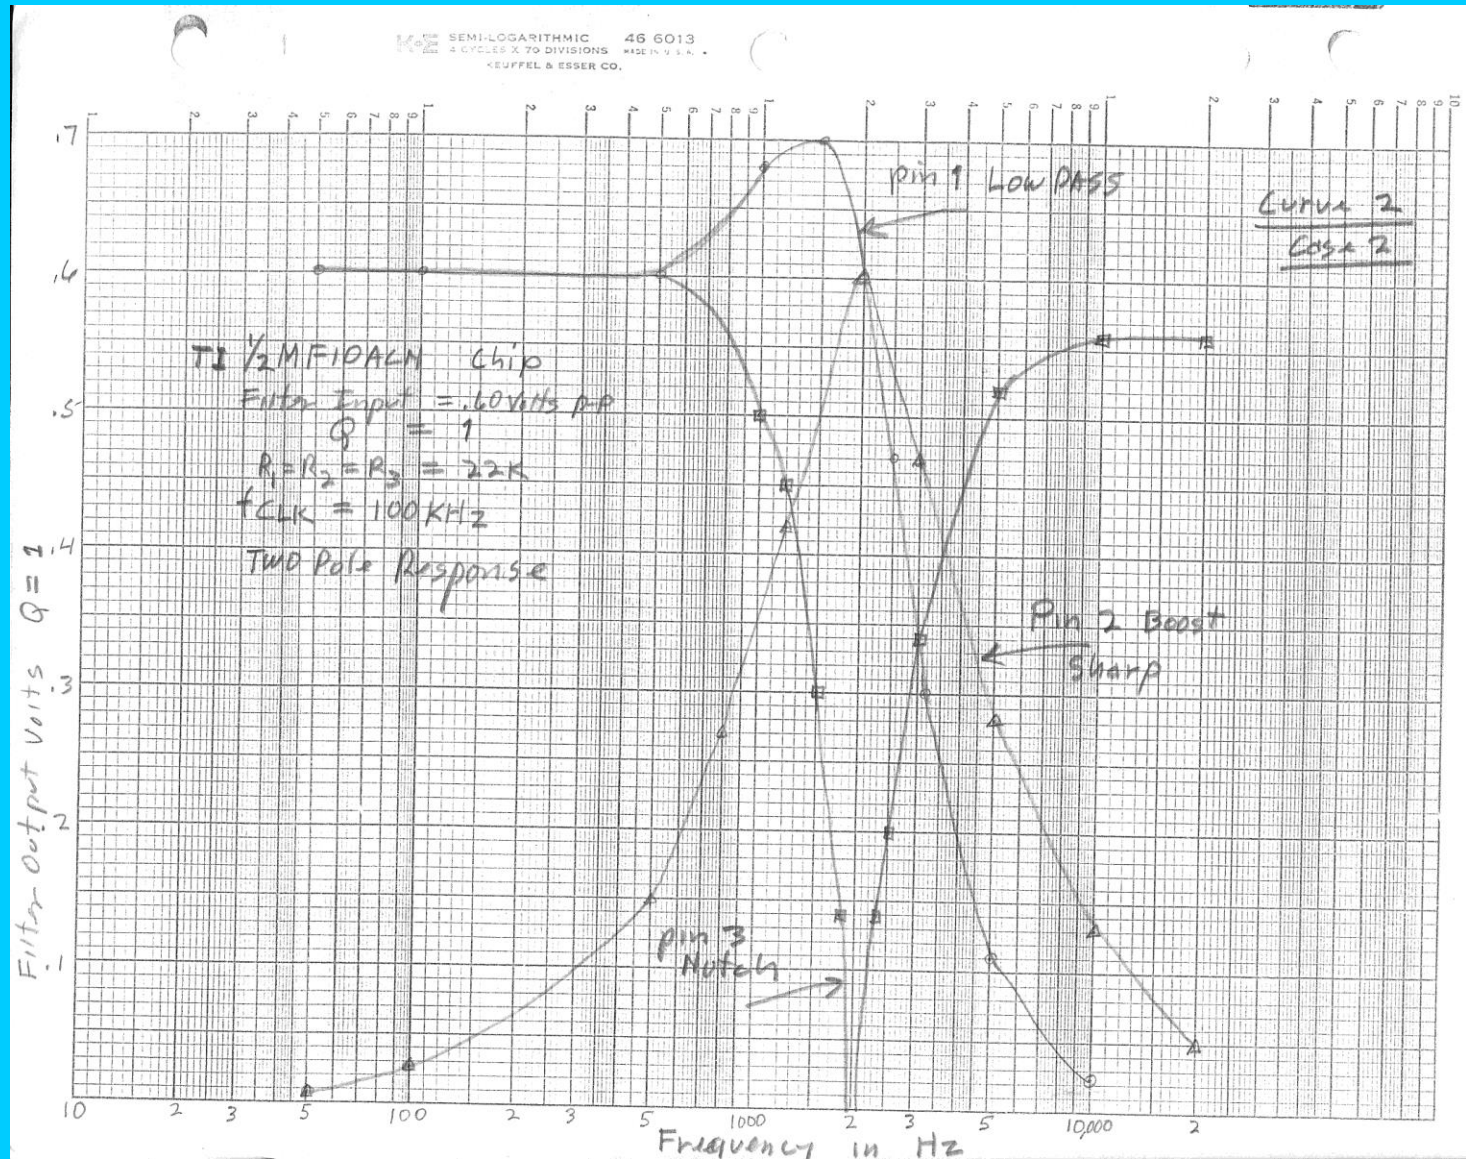 K+E SEMI-LOGARITHMIC 46 6013
4 CYCLES X 70 DIVISIONS MADE IN U.S.A.
KEUFFEL & ESSER CO.
1 2 3 4 5 6 7 8 9 1 2 3 4 5 6 7 8 9 1 2 3 4 5 6 7 8 9 1 2 3 4 5 6 7 8 9 10
.7
pin 1 LOW PASS
Curve 2
Case 2
.6
TI 1/2 MF10ACN Chip
Filter Input = .60 Volts p-p
Q = 1
R1 = R2 = R3 = 22K
fCLK = 100 KHz
Two Pole Response
.5
.4
Pin 2 Boost
Sharp
.3
.2
pin 3
Notch
.1
Filter Output Volts Q = 1
10 2 3 5 100 2 3 5 1000 2 3 5 10,000 2
Frequency in Hz